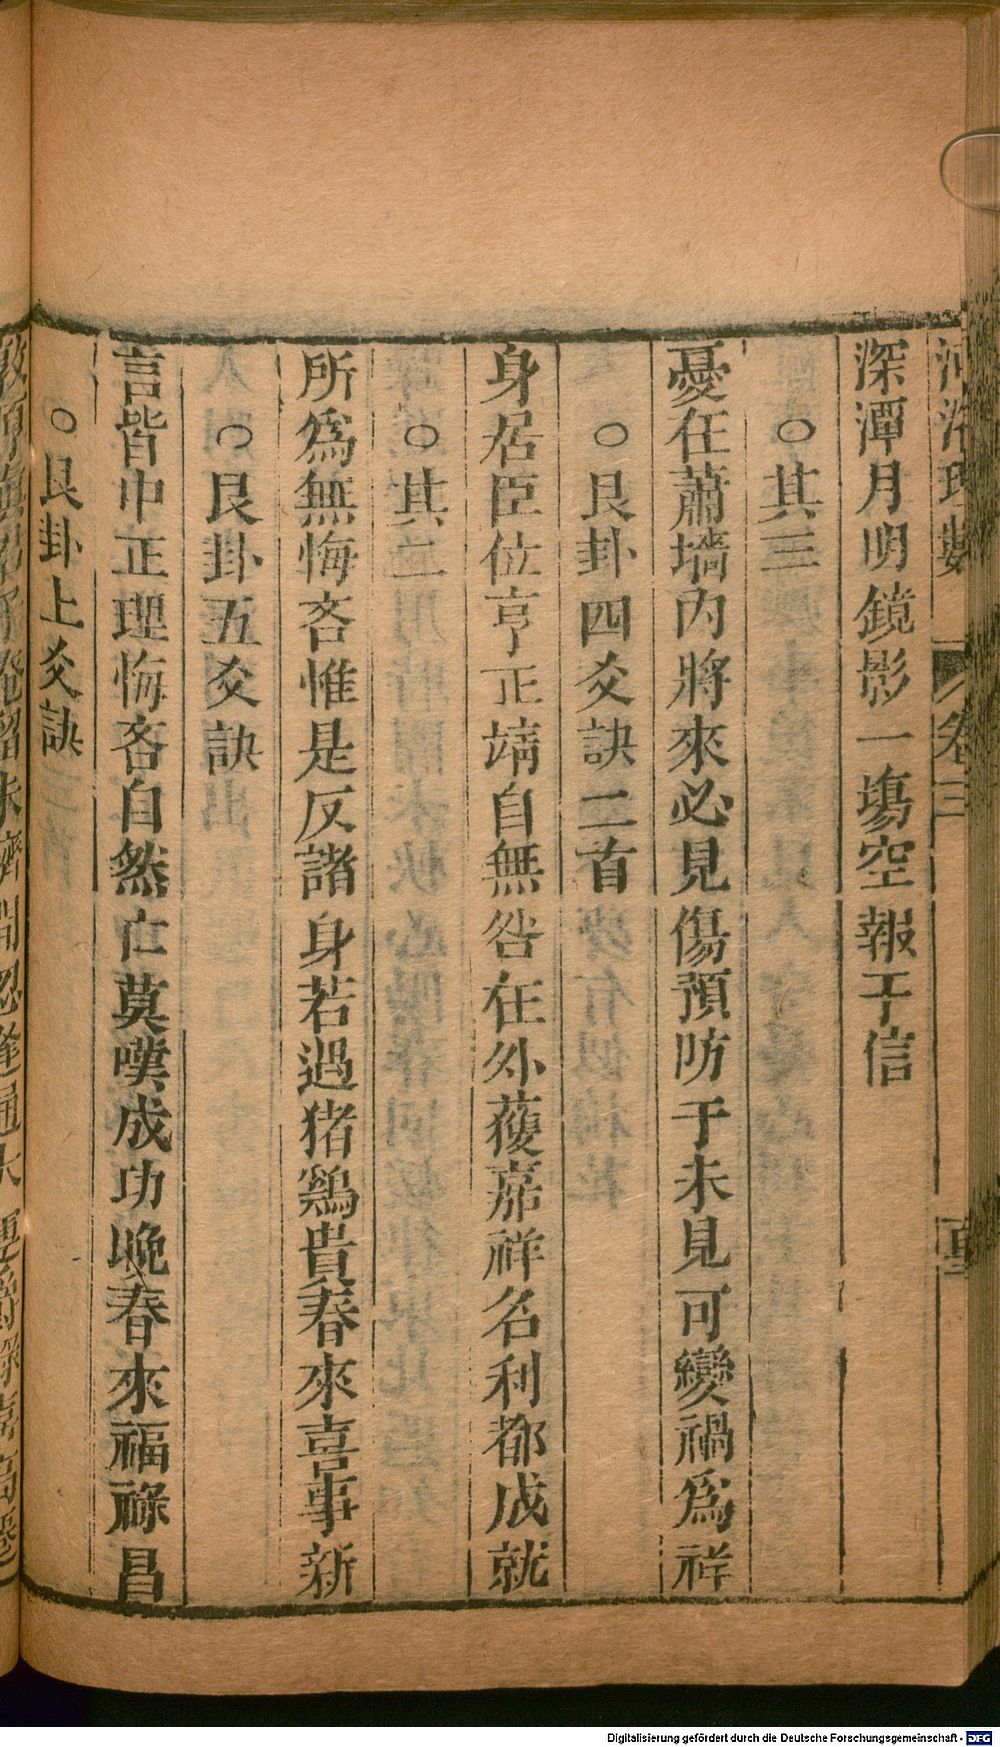 河洛理數 卷三
深潭月明鏡影一塲空報于信
○其三
憂在蕭墻內將來必見傷預防于未見可變禍爲祥
○艮卦四爻訣二首
身居臣位亨正靖自無咎在外獲嘉祥名利都成就
○其二
所爲無悔吝惟是反諸身若過猪鷄貴春來喜事新
○艮卦五爻訣
言皆中正理悔吝自然亡莫嘆成功晚春來福祿昌
○艮卦上爻訣
Digitalisierung gefördert durch die Deutsche Forschungsgemeinschaft - DFG